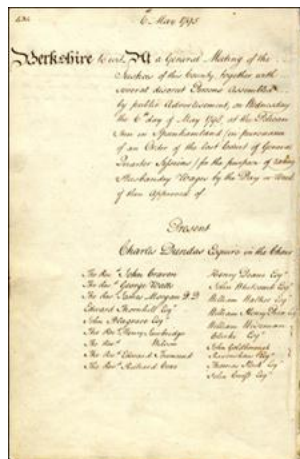 434
6th May 1795
Berkshire to wit. At a General Meeting of the
Justices of this County, together with
several discreet Persons Assembled
by public Advertisement, on Wednesday
the 6th day of May 1795, at the Pelican
Inn in Speenhamland (in pursuance
of an Order of the last Court of General
Quarter Sessions) for the purpose of rating
Husbandry Wages by the Day or Week
if then Approved of
Present
Charles Dundas Esquire in the Chair
The Revd John Craven
The Revd George Watts
The Rev James Morgan D.D
Edward Thornhill Esqr
John Blagrave Esqr
The Rev Henry Sawbridge
The Revd Wilson
The Revd Edward Townsend
The Revd Richard
Henry Deane Esqr
John Esqr
William Walker Esq
William Henry Price Esq
William Wiseman
Clarke Esqr
John Goldsborough
Ravenshaw Esqr
Thomas Esqr
John Croft Esqr